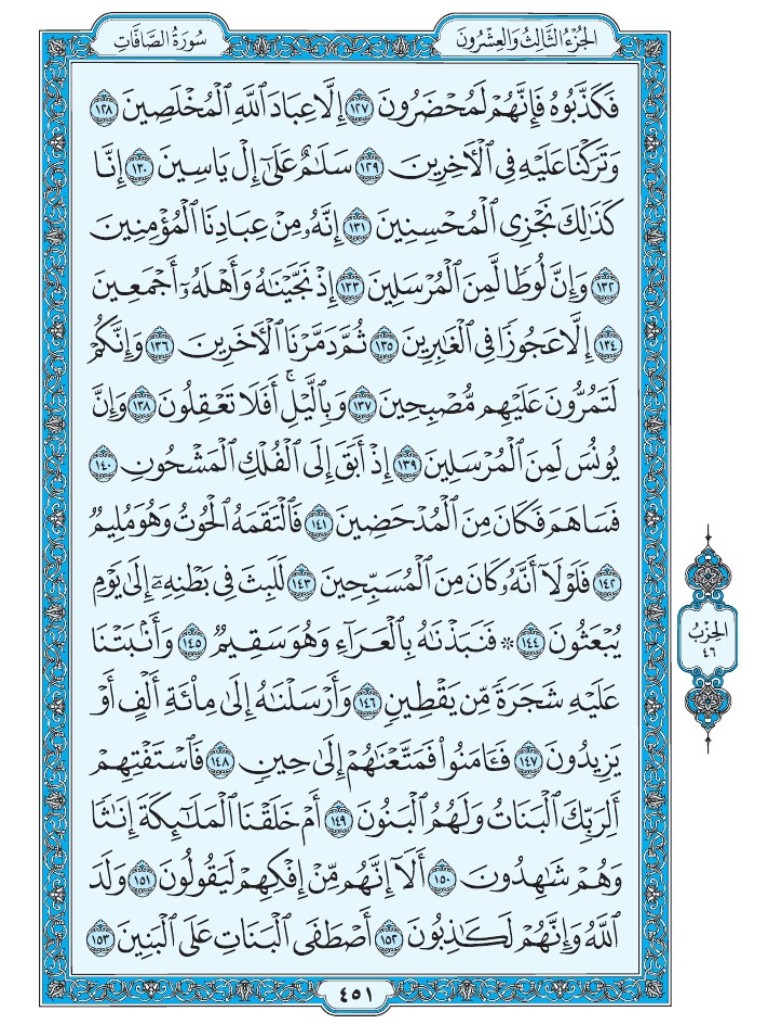 سُورَةُ الصَّافَّاتِ
الجُزْءُ الثَّالِثُ وَالعِشْرُونَ
فَكَذَّبُوهُ فَإِنَّهُمْ لَمُحْضَرُونَ ١٢٧ إِلَّا عِبَادَ اللَّهِ الْمُخْلَصِينَ ١٢٨
وَتَرَكْنَا عَلَيْهِ فِي الْآخِرِينَ ١٢٩ سَلَامٌ عَلَىٰ إِلْ يَاسِينَ ١٣٠ إِنَّا
كَذَٰلِكَ نَجْزِي الْمُحْسِنِينَ ١٣١ إِنَّهُ مِنْ عِبَادِنَا الْمُؤْمِنِينَ
١٣٢ وَإِنَّ لُوطًا لَّمِنَ الْمُرْسَلِينَ ١٣٣ إِذْ نَجَّيْنَاهُ وَأَهْلَهُ أَجْمَعِينَ
١٣٤ إِلَّا عَجُوزًا فِي الْغَابِرِينَ ١٣٥ ثُمَّ دَمَّرْنَا الْآخَرِينَ ١٣٦ وَإِنَّكُمْ
لَتَمُرُّونَ عَلَيْهِم مُّصْبِحِينَ ١٣٧ وَبِاللَّيْلِ ۚ أَفَلَا تَعْقِلُونَ ١٣٨ وَإِنَّ
يُونُسَ لَمِنَ الْمُرْسَلِينَ ١٣٩ إِذْ أَبَقَ إِلَى الْفُلْكِ الْمَشْحُونِ ١٤٠
فَسَاهَمَ فَكَانَ مِنَ الْمُدْحَضِينَ ١٤١ فَالْتَقَمَهُ الْحُوتُ وَهُوَ مُلِيمٌ
١٤٢ فَلَوْلَا أَنَّهُ كَانَ مِنَ الْمُسَبِّحِينَ ١٤٣ لَلَبِثَ فِي بَطْنِهِ إِلَىٰ يَوْمِ
يُبْعَثُونَ ١٤٤ ۞ فَنَبَذْنَاهُ بِالْعَرَاءِ وَهُوَ سَقِيمٌ ١٤٥ وَأَنبَتْنَا
عَلَيْهِ شَجَرَةً مِّن يَقْطِينٍ ١٤٦ وَأَرْسَلْنَاهُ إِلَىٰ مِائَةِ أَلْفٍ أَوْ
يَزِيدُونَ ١٤٧ فَـَٔامَنُوا فَمَتَّعْنَاهُمْ إِلَىٰ حِينٍ ١٤٨ فَاسْتَفْتِهِمْ
أَلِرَبِّكَ الْبَنَاتُ وَلَهُمُ الْبَنُونَ ١٤٩ أَمْ خَلَقْنَا الْمَلَائِكَةَ إِنَاثًا
وَهُمْ شَاهِدُونَ ١٥٠ أَلَا إِنَّهُم مِّنْ إِفْكِهِمْ لَيَقُولُونَ ١٥١ وَلَدَ
اللَّهُ وَإِنَّهُمْ لَكَاذِبُونَ ١٥٢ أَصْطَفَى الْبَنَاتِ عَلَى الْبَنِينَ ١٥٣
الحِزْبُ
٤٦
٤٥١